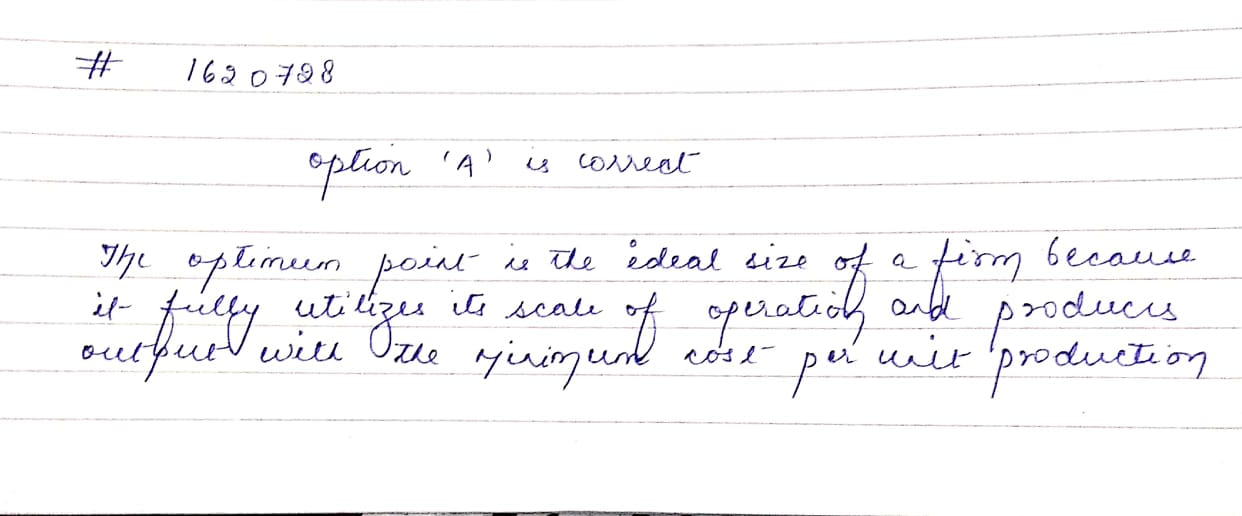 # 1620728
option 'A' is correct
The optimum point is the ideal size of a firm because
it fully utilizes its scale of operation and produces
output with the minimum cost per unit production